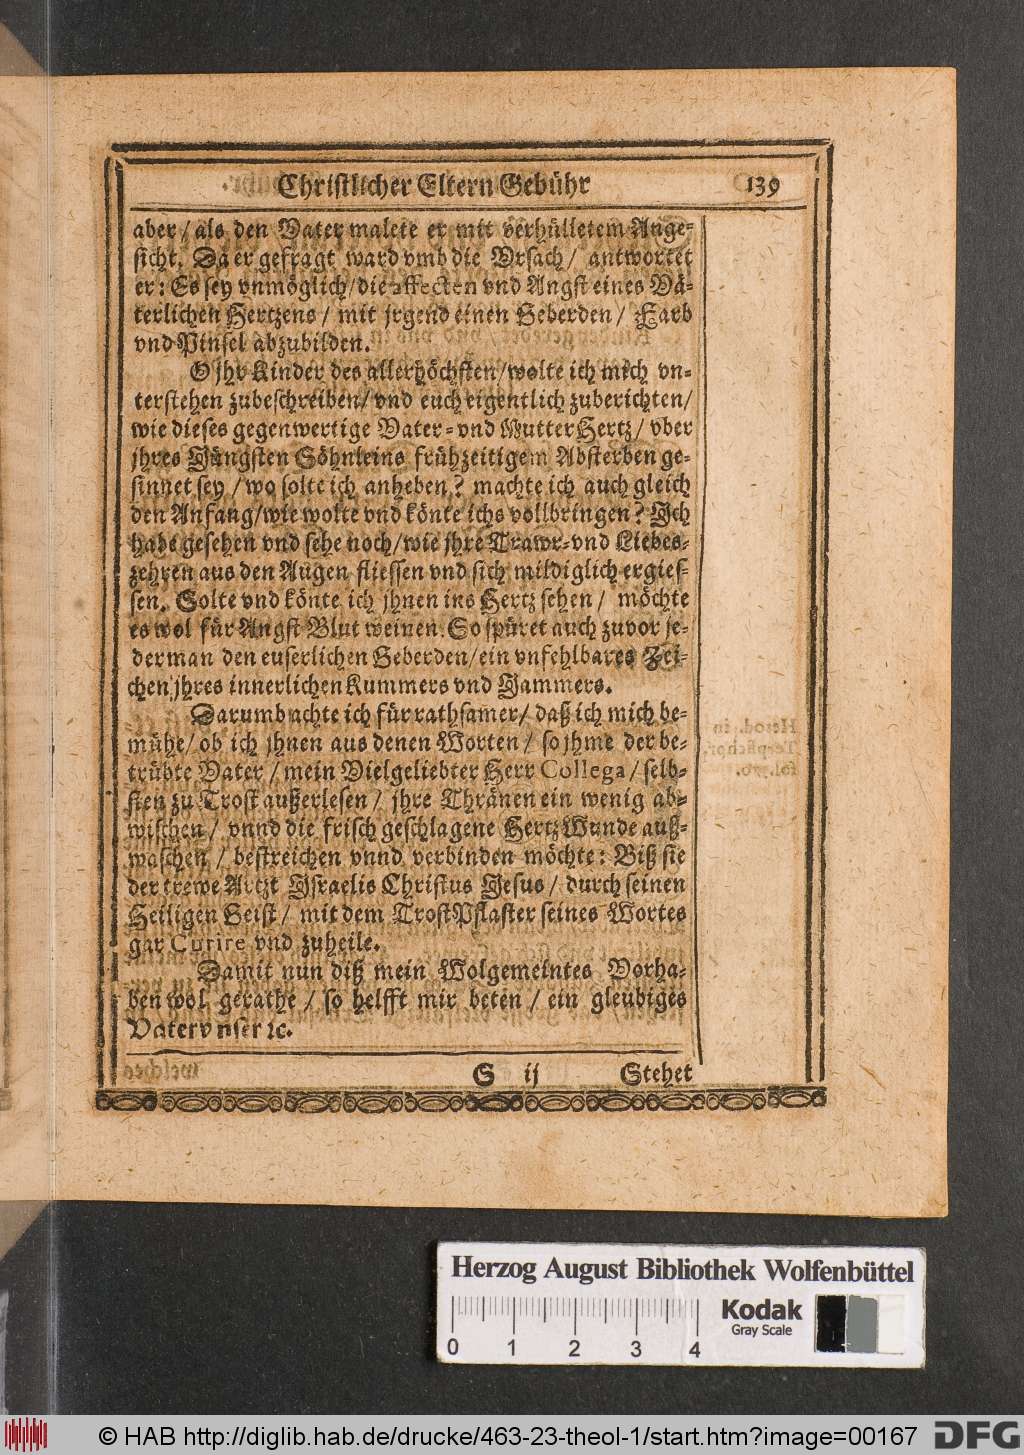 Christlicher Eltern Gebühr 139
aber / als den Vater malete er mit verhülletem Ange-
sicht. Da er gefragt ward vmb die Vrsach / antwortet
er: Es sey vnmöglich / die affecten vnd Angst eines Vä-
terlichen Hertzens / mit jrgend einen Geberden / Farb
vnd Pinsel abzubilden.
O jhr Kinder des allerhöchsten / wolte ich mich vn-
terstehen zubeschreiben / vnd euch eigentlich zuberichten /
wie dieses gegenwertige Vater- vnd Mutter Hertz / vber
jhres Jüngsten Söhnleins frühzeitigem Absterben ge-
sinnet sey / wo solte ich anheben? machte ich auch gleich
den Anfang / wie wolte vnd könte ichs vollbringen? Ich
habe gesehen vnd sehe noch / wie jhre Trawr- vnd Liebes-
zehren aus den Augen fliessen vnd sich mildiglich ergies-
sen. Solte vnd könte ich jhnen ins Hertz sehen / möchte
es wol für Angst Blut weinen. So spüret auch zuvor je-
derman den euserlichen Geberden / ein vnfehlbares Zei-
chen jhres innerlichen Kummers vnd Jammers.
Darumb achte ich für rathsamer / daß ich mich be-
mühe / ob ich jhnen aus denen Worten / so jhme der be-
trübte Vater / mein Vielgeliebter Herr Collega / selb-
sten zu Trost außerlesen / jhre Thränen ein wenig ab-
wischen / vnnd die frisch geschlagene Hertz Wunde auß-
waschen / bestreichen vnnd verbinden möchte: Biß sie
der trewe Artzt Jsraelis Christus Jesus / durch seinen
Heiligen Geist / mit dem TrostPflaster seines Wortes
gar Curire vnd zuheile.
Damit nun diß mein Wolgemeintes Vorha-
ben wol gerathe / so helfft mir beten / ein gleubiges
Vater vnser ꝛc.
S ij Stehet
Herzog August Bibliothek Wolfenbüttel
Kodak
Gray Scale
0 1 2 3 4
© HAB http://diglib.hab.de/drucke/463-23-theol-1/start.htm?image=00167
DFG